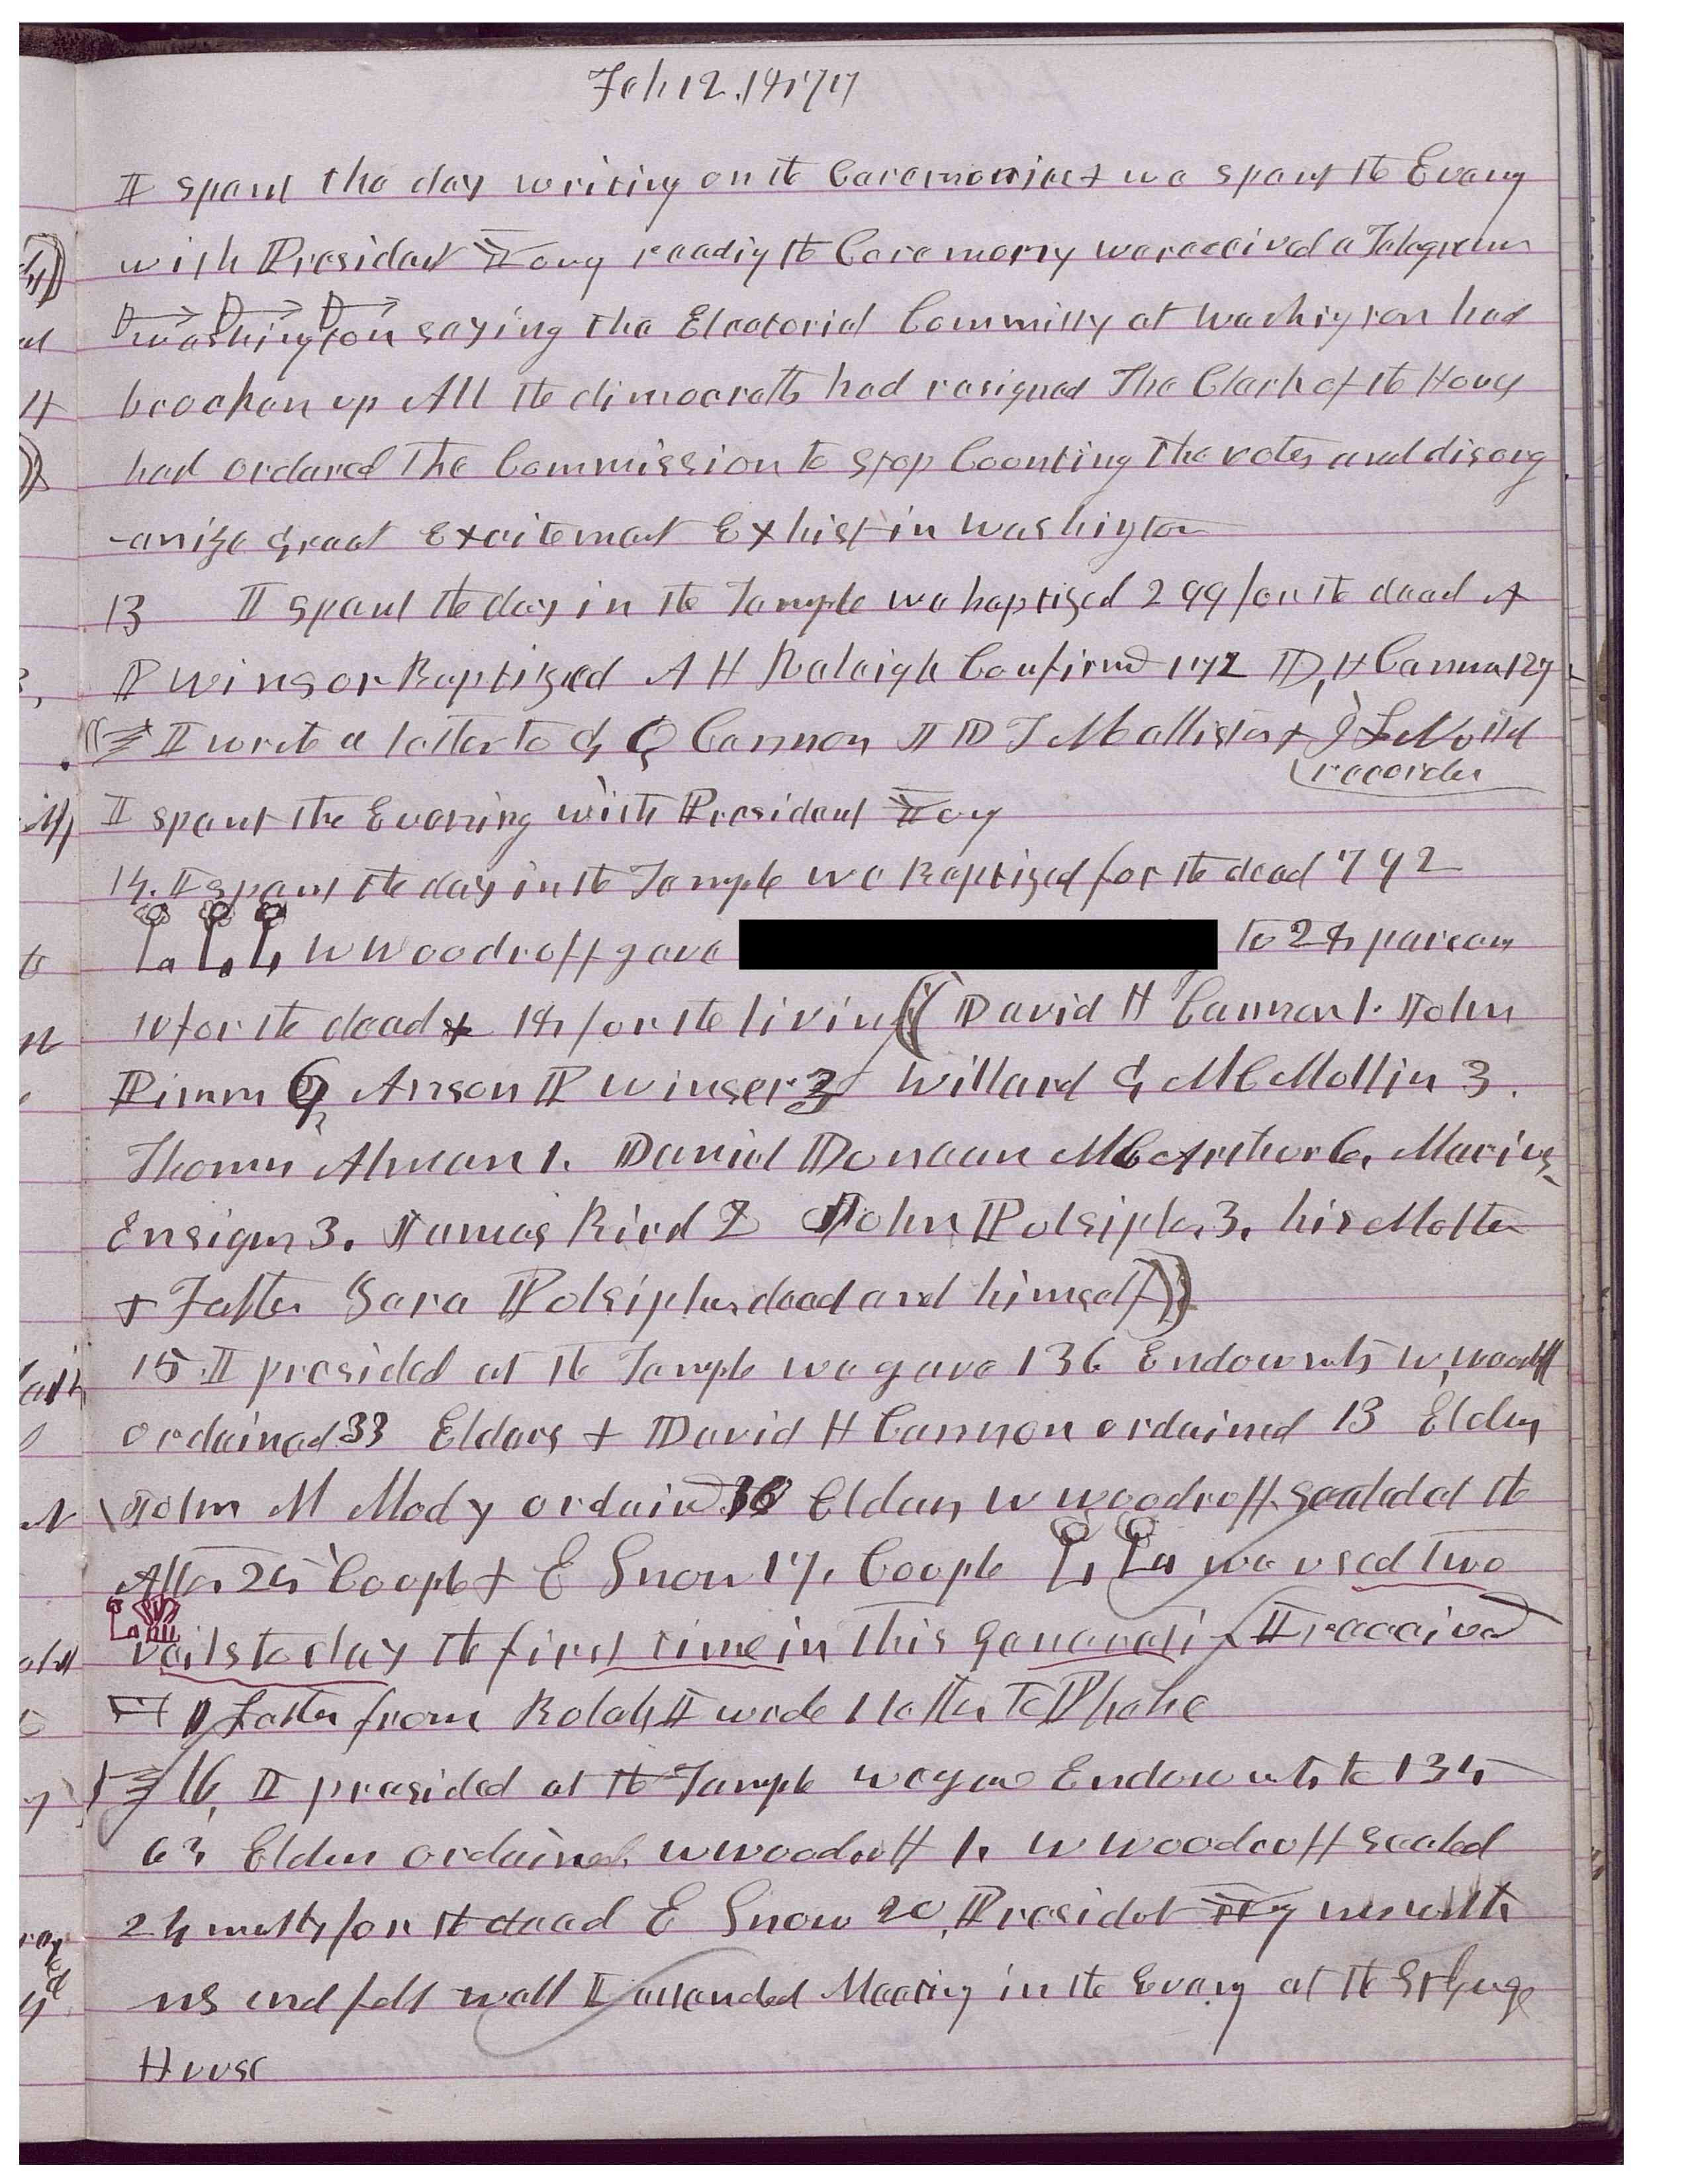 Feb 12. 1877
I spent the day writing on the Ceremonies & we spent the Eveng
with President Young reading the Ceremony we received a Telegram
Washington saying the Electorial Committy at Washington had
broaken up All the dimocrats had resigned The Clerk of the House
had ordered the Commission to stop Counting the votes and disorg
-anize Great Excitement Exhist in Washington
13 I spent the day in the Temple we baptized 299 for the dead A
P Winsor Baptized A H Raleigh Confirmd 172 D, H Cannon 127
I wrote a letter to G Q Cannon J D T McAllister & J L Nuttall
recorder
I spent the Evening with President Young
14. I spent the day in the Temple we Baptized for the dead 792
W Woodruff gave to 28 persons
10 for the dead & 18 for the living ((David H Cannon 1. John
Pimm Anson P Winser 3 Willard G McMullin 3.
Thomas 1. Daniel Duncan McArthur 6, Marius
Ensign 3. James Bird 2 John Pulsipher 3. his Mother
& Father Zera Pulsipher dead and himself))
15. I presided at the Temple we gave 136 Endowmts W, Woodruff
ordained 33 Elders & David H Cannon ordained 13 Elders
John M Mody ordaind Elders, W Woodruff sealed at the
Alter 25 Couple & E Snow 17. Couple we used two
vails to day the first time in this generati I received
1 Letter from Bulah I wrote 1 letter to Phebe
16, I presided at the Temple we gave Endowmts to 134
63 Elders ordained W Woodruff 1. W Woodruff sealed
24 for the dead E Snow 20, Presidet Young was with
us and felt well I attended Meeting in the Eveng at the St George
House